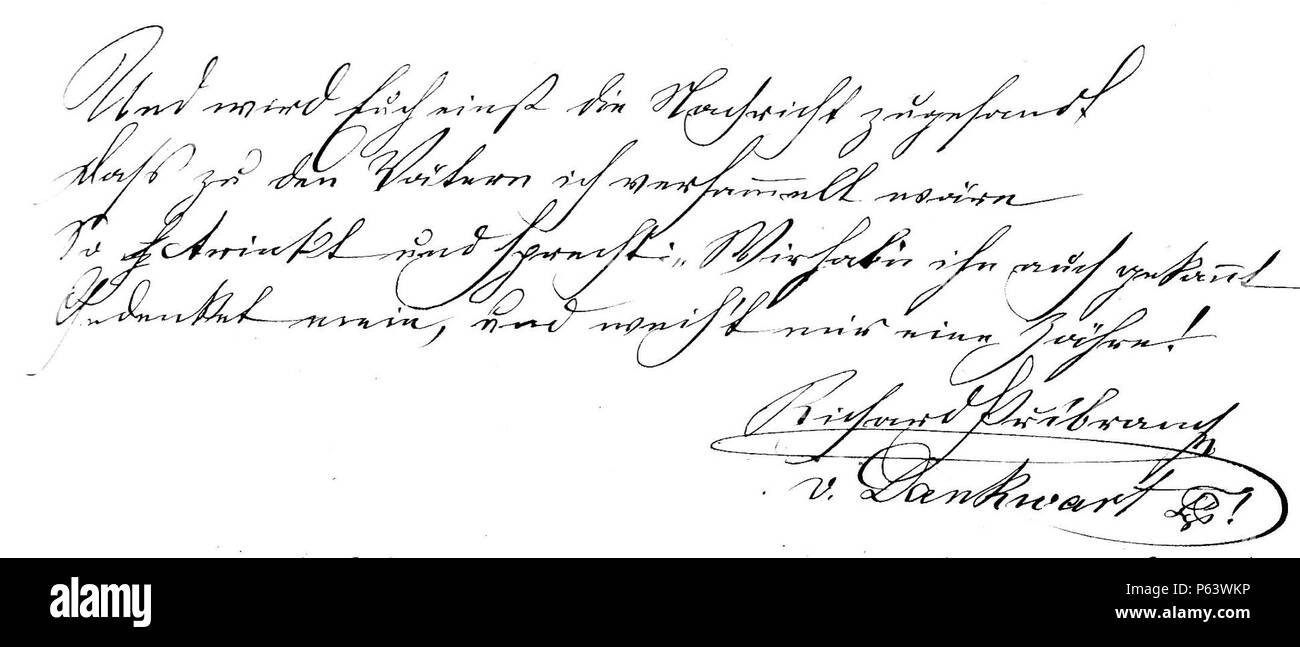 Und wird Euch einst die Nachricht zugesandt
Dass zu den Vätern ich versammelt wäre
So trinkt und sprecht: „Wir haben ihn auch gekannt
Gedenket mein, und weih't mir eine Zähre!
Richard Pribram
v. Dankwart !
alamy
Image ID: P63WKP
www.alamy.com